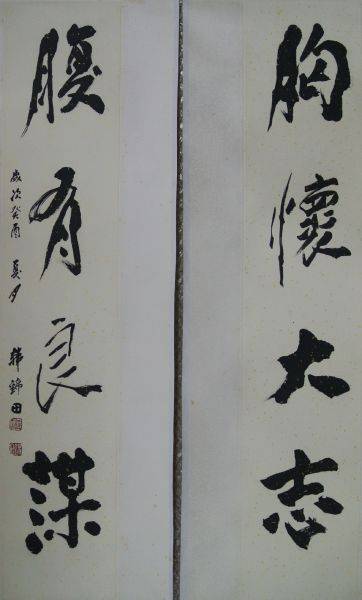 胸懷大志
腹有良謀
歲次癸酉 夏月
韓錦田